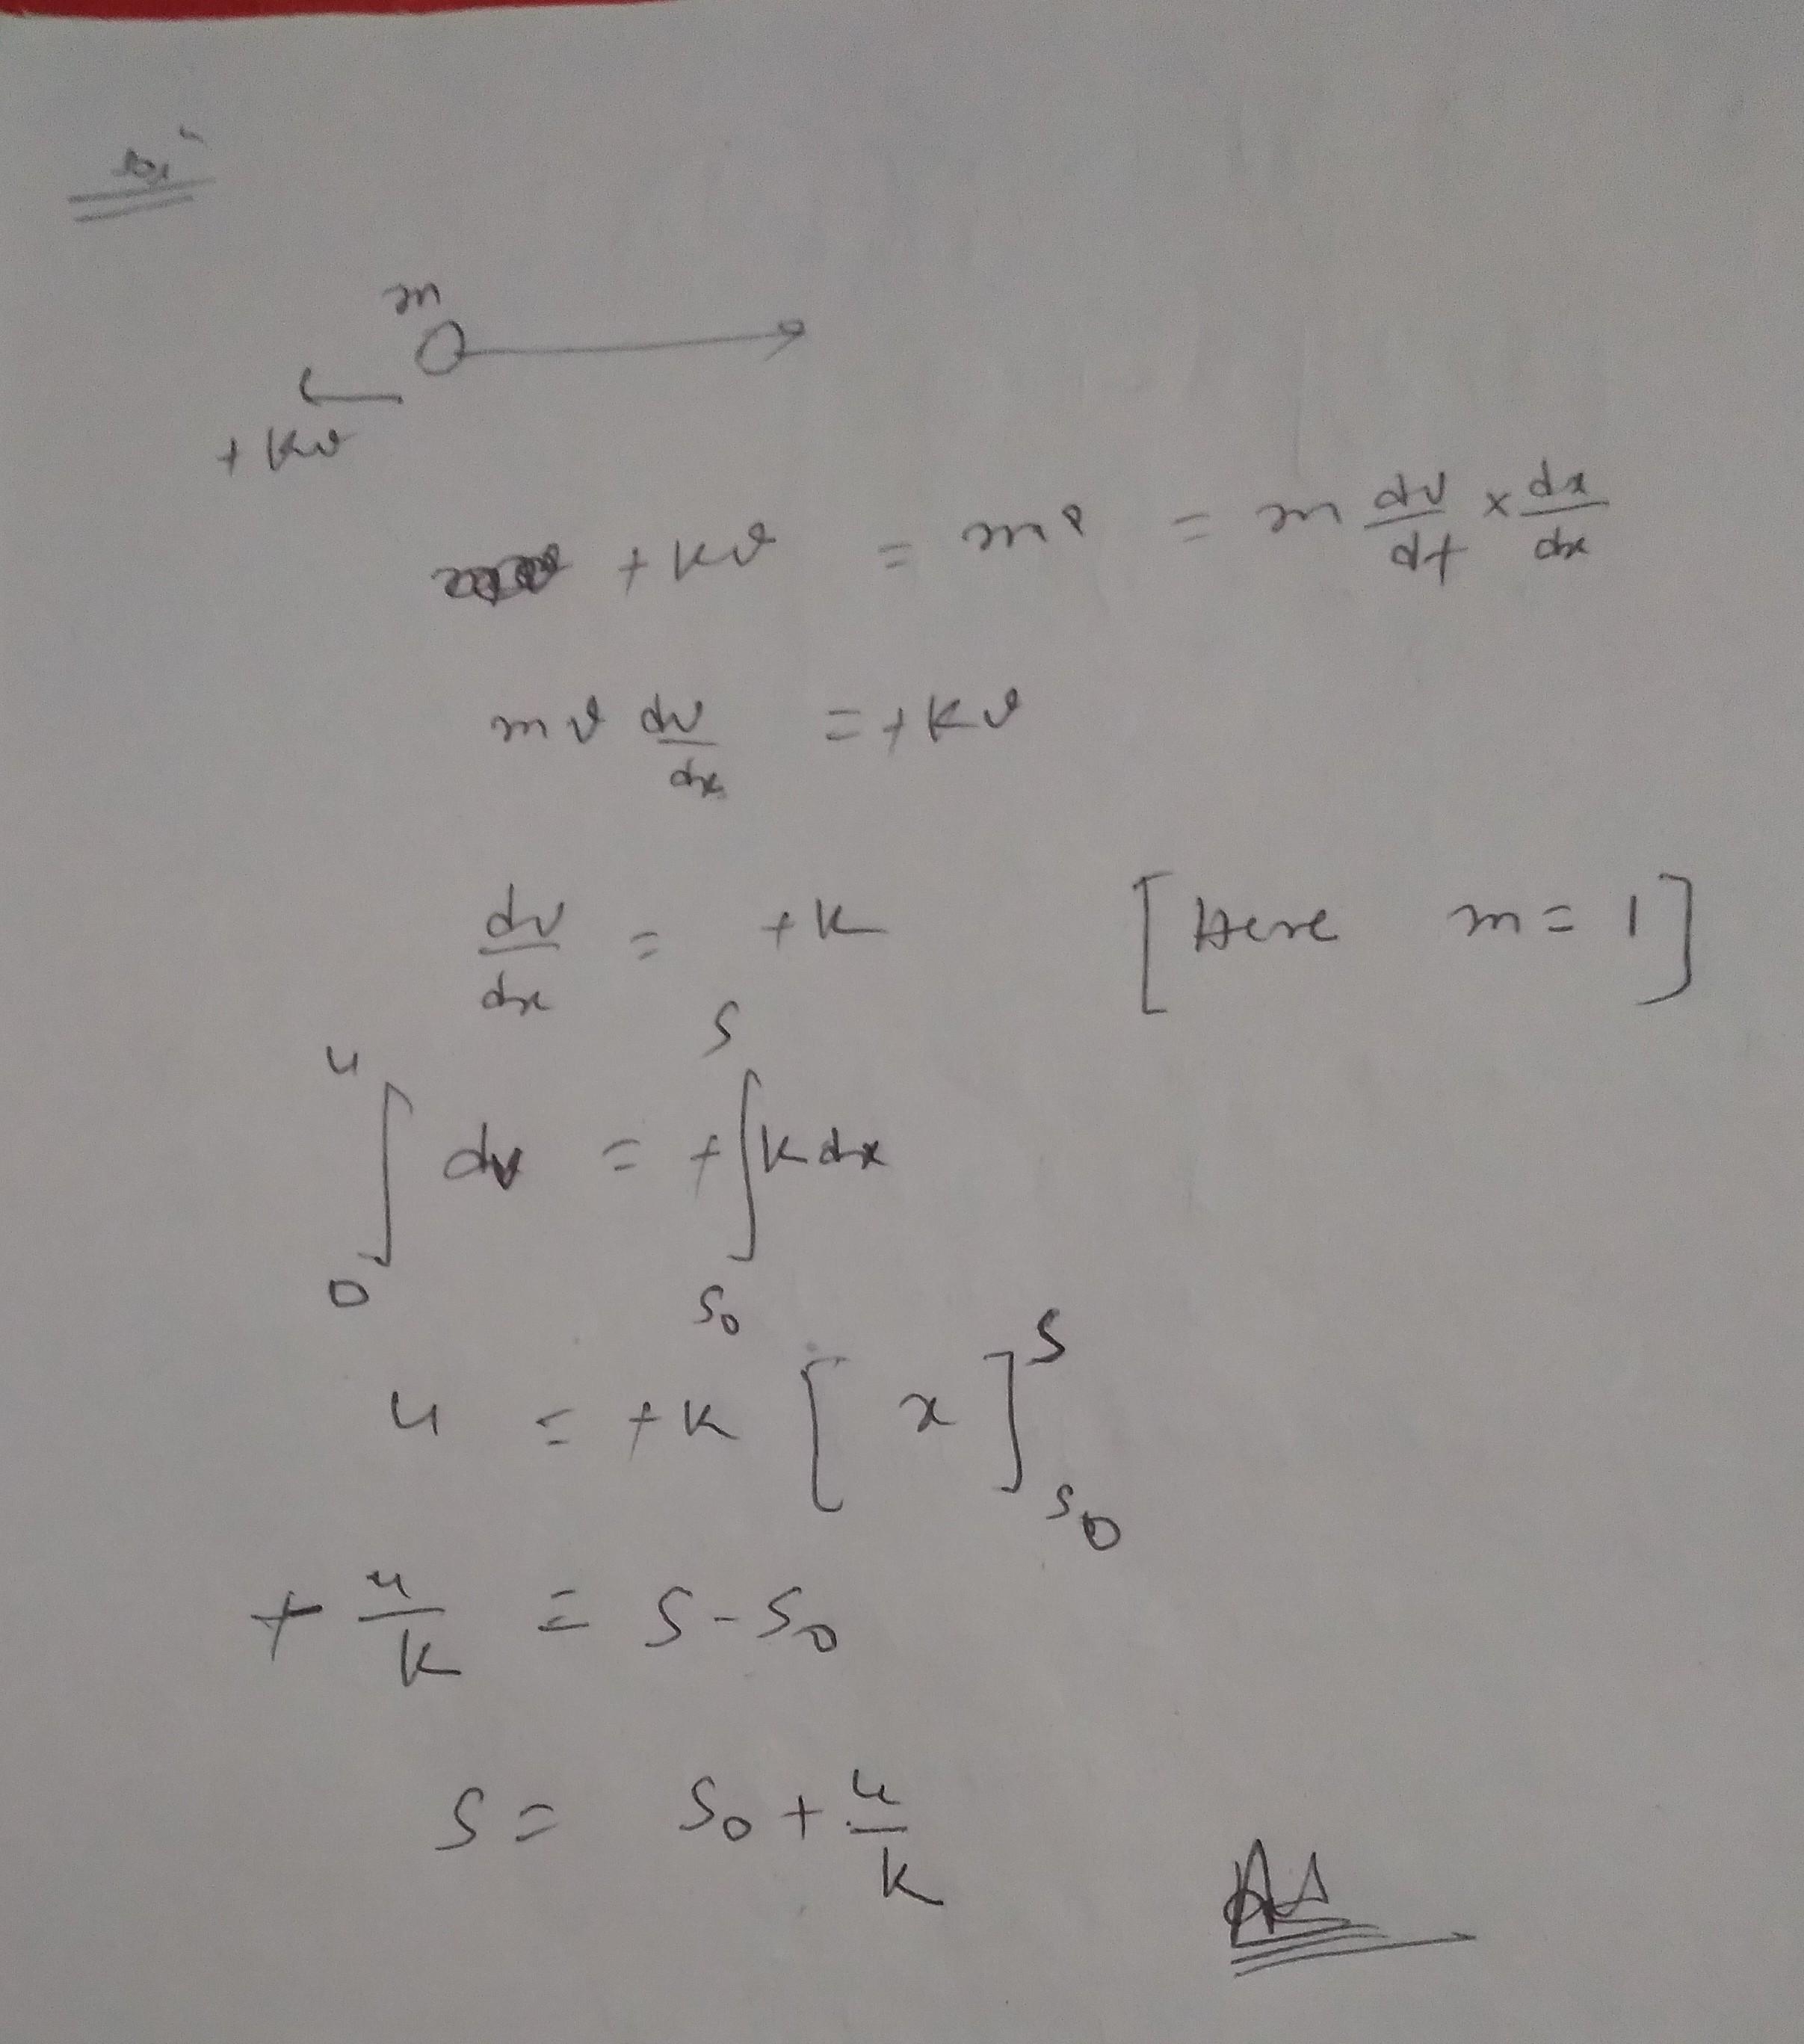 Solⁿ
m
+kv
+kv = ma = m dv/dt × dx/dx
mv dv/dx = +kv
dv/dx = +k [Here m = 1]
∫₀ᵘ dv = +∫ₛ₀ˢ k dx
u = +k [x]ₛ₀ˢ
+ u/k = S - S₀
S = S₀ + u/k